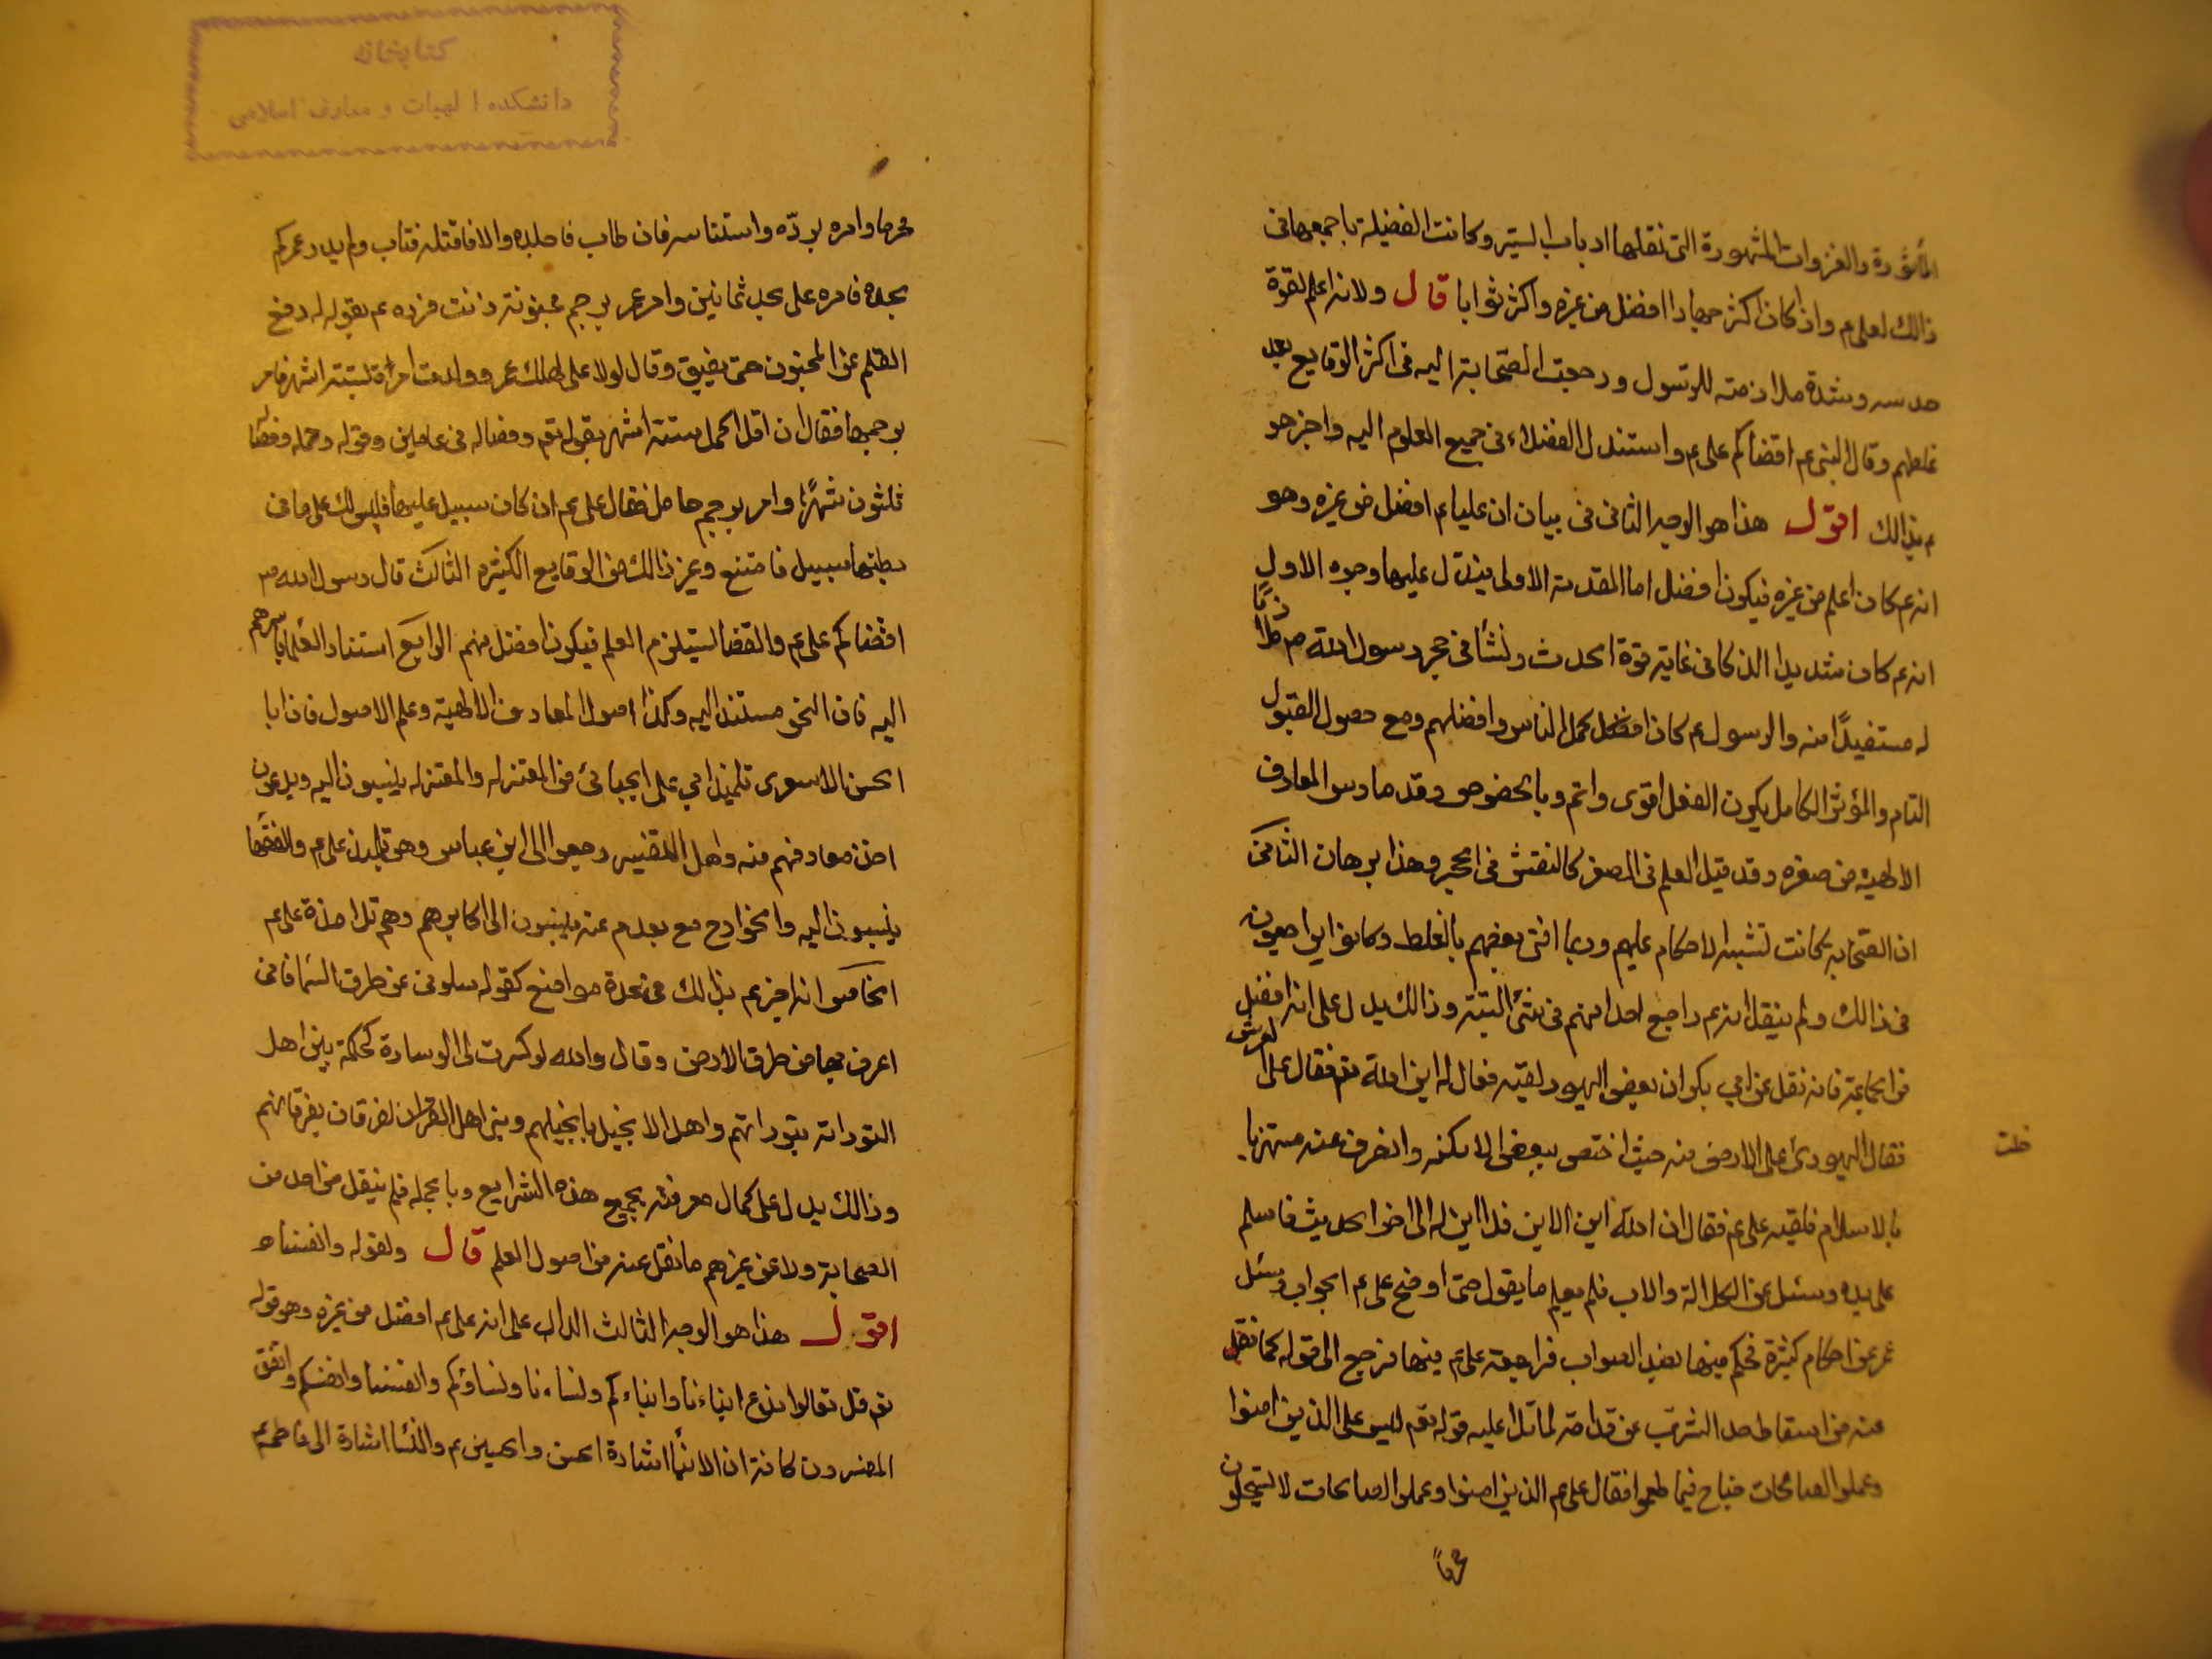 المأثورة والغزوات المشهورة التى نقلها ارباب السير وكانت الفضيلة باجمعها فى
ذالك لعلى ع واذا كان اكثر جهادا افضل من غيره واكثر ثوابا قال ولانه اعلم لقوة
حدسه وشدة ملازمته للرسول ورجعت الصحابة اليه فى اكثر الوقايع بعد
غلطهم وقال النبى ع اقضاكم على ع واستند الفضلاء فى جميع العلوم اليه واخبر هو
ع بذالك اقول هذا هو الوجه الثانى فى بيان ان عليا ع افضل من غيره وهو
انه ع كان اعلم من غيره فيكون افضل اما المقدمة الاولى فيدل عليها وجوه الاول
انه ع كان شديد الذكا فى غاية قوة الحدث ونشأ فى حجر رسول الله ص ملازمًا
له مستفيدًا منه والرسول ع كان اكمل الناس وافضلهم ومع حصول القبول
التام والمؤثر الكامل يكون الفعل اقوى واتم وبالخصوص وقد مارس المعارف
الالهية من صغره وقد قيل العلم فى الصغر كالنقش فى الحجر وهذا برهان الثانى
ان الصحابة كانت تشتبه الاحكام عليهم وربما افتى بعضهم بالغلط وكانوا يراجعونه
فى ذالك ولم ينقل انه ع راجع احدا منهم فى شئ البتة وذالك يدل على انه افضل
من الجماعة فانه نقل عن ابى بكر ان بعض اليهود لقيه فقال له اين الله تع فقال على العرش
فقال اليهودى خلت الارض منه حيث اختص ببعض الامكنه وانصرف عنه مستهزيا
بالاسلام فلقيه على ع فقال ان الله اين الاين فلا اين له الى اخر الحديث فاسلم
على يده وسئل عن الكلالة والاب فلم يعلم ما يقول حتى اوضح على ع الجواب وسئل
عمر عن احكام كثيرة فحكم فيها بغير الصواب فراجعه على ع فيها فرجع الى قوله كما نقل
عنه من اسقاط حد الشرب عن قدامة لما تلا عليه قوله تع ليس على الذين امنوا
وعملوا الصالحات جناح فيما طعموا فقال على ع الذين امنوا وعملوا الصالحات لا يستحلون
محرمًا
خلت
كتابخانه
دانشكده الهيات و معارف اسلامى
محرما وامره بردّه واستتابته فان طاب فاجلده والا فاقتله فتاب ولم يدر عمر كم
يحده فامره على بحد ثمانين وامر عمر برجم مجنونة زنت فرده ع بقوله رفع
القلم عن المجنون حتى يفيق وقال لولا على لهلك عمر وولدت امرأة لستة اشهر فامر
برجمها فقال ان اقل الحمل ستة اشهر بقوله تع وفصاله فى عامين وقوله وحمله وفصاله
ثلثون شهرًا وامر برجم حامل فقال على ع ان كان سبيل عليها فليس لك على ما فى
بطنها سبيل فامتنع وغير ذالك من الوقايع الكثيرة الثالث قال رسول الله ص
اقضاكم على ع والقضا يستلزم العلم فيكون افضل منهم الرابع استناد العلما باسرهم
اليه فان النحو مستند اليه وكذا اصول المعارف الالهية وعلم الاصول فان ابا
الحسن الاشعرى تلميذ ابى على الجبائى من المعتزله والمعتزله ينسبون اليه ويدعون
اخذ معارفهم منه واهل التفسير رجعوا الى ابن عباس وهو تلميذ على ع والفقها
ينسبون اليه والخوارج مع بعدهم عنه ينسبون الى اكابرهم وهم تلامذة على ع
الخامس انه اخبر ع بذالك فى عدة مواضع كقوله سلونى عن طرق السما فانى
اعرف بها من طرق الارض وقال والله لو كسرت لى الوسادة لحكمت بين اهل
التوراته بتوراتهم واهل الانجيل بانجيلهم وبين اهل الفرقان بفرقانهم
وذالك يدل على كمال معرفته بجميع هذه الشرايع وبالجمله فلم ينقل من احد من
الصحابة ولا عن غيرهم ما نقل عنه من اصول العلم قال ولقوله وانفسنا
اقول هذا هو الوجه الثالث الدال على انه على ع افضل من غيره وهو قوله
تع قل تعالوا ندع ابناءنا وابناءكم ونساءنا ونساؤكم وانفسنا وانفسكم واتفق
المفسرون كافة ان الابنا اشارة الحسن والحسين ع والنسا اشارة الى فاطمة ع